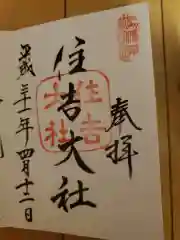 奉拝
住吉大社
住吉
大社
平成三十一年四月十二日